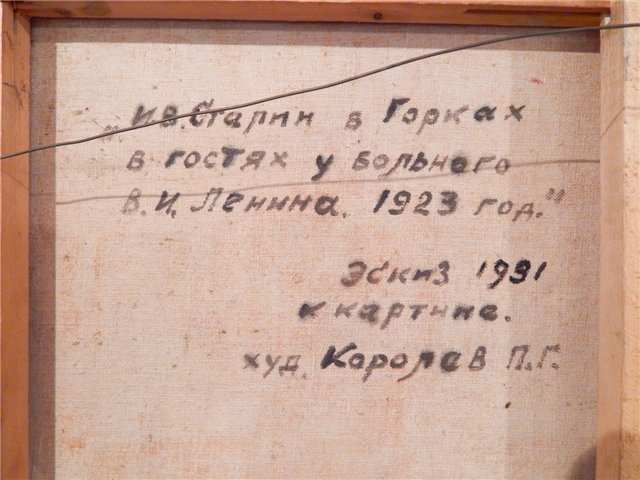 „И.В. Сталин в Горках
в гостях у больного
В.И. Ленина. 1923 год."
Эскиз 1931
к картине.
худ. Королев П.Г.